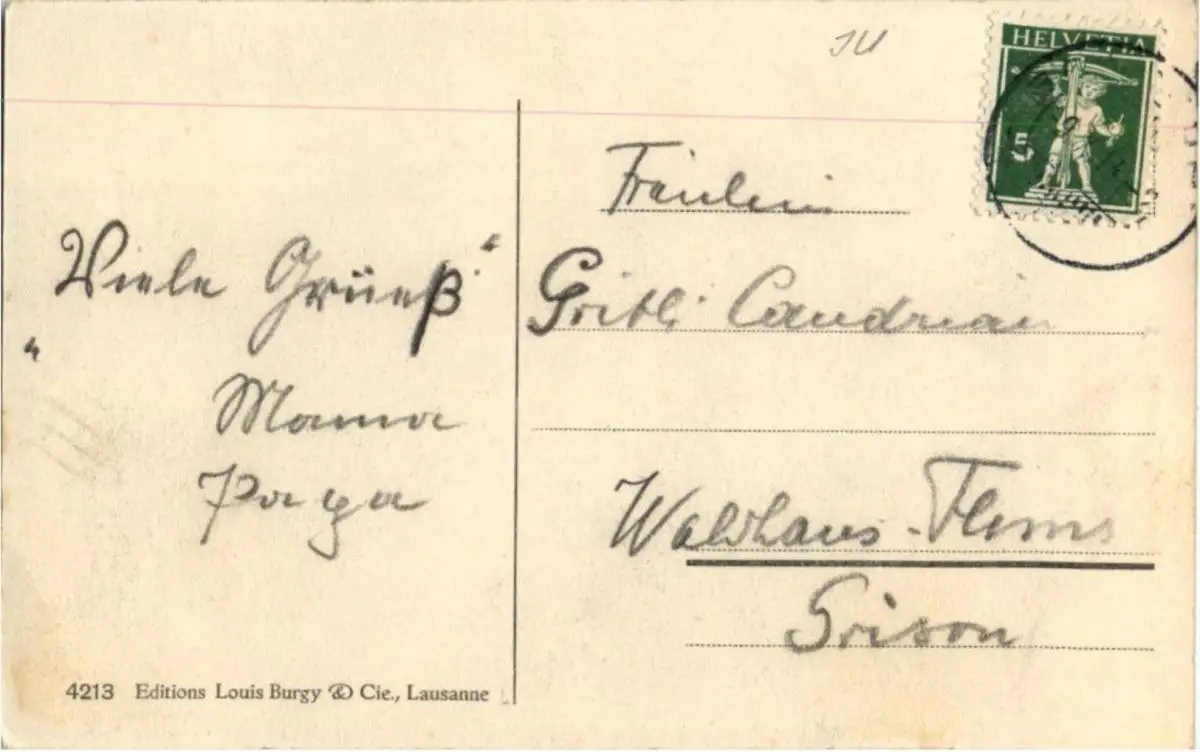 JU
HELVETIA
5
Fräulein
Gritli Candrian
Waldhaus-Flims
Grison
Viele Grüeß
Mama
Papa
4213 Editions Louis Burgy & Cie., Lausanne